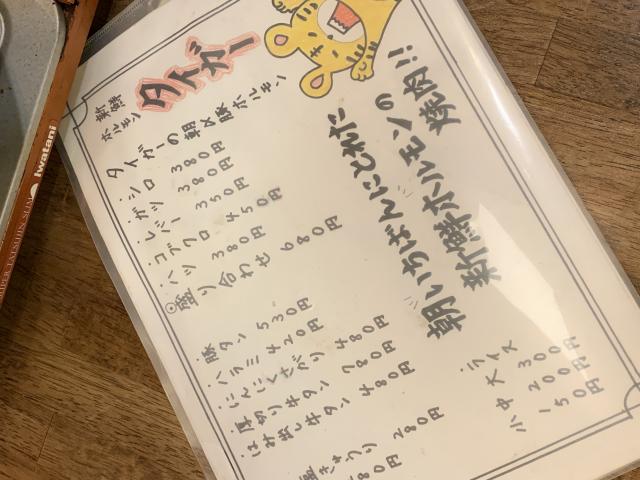 新鮮
ホルモン
タイガー
タイガーの朝〆豚ホルモン
・シロ 380円
・ガツ 380円
・レバー 350円
・コブクロ 450円
・ハツ 380円
◎盛り合わせ 680円
・豚タン 530円
・ハラミ 420円
・にんにくさがり 480円
・厚切り牛タン 780円
・はみ出し牛タン 480円
きゅうり 280円
80円
朝いちばんにとれた
新鮮ホルモンの
焼肉!!
ライス
大 300円
中 200円
小 150円
iwatani